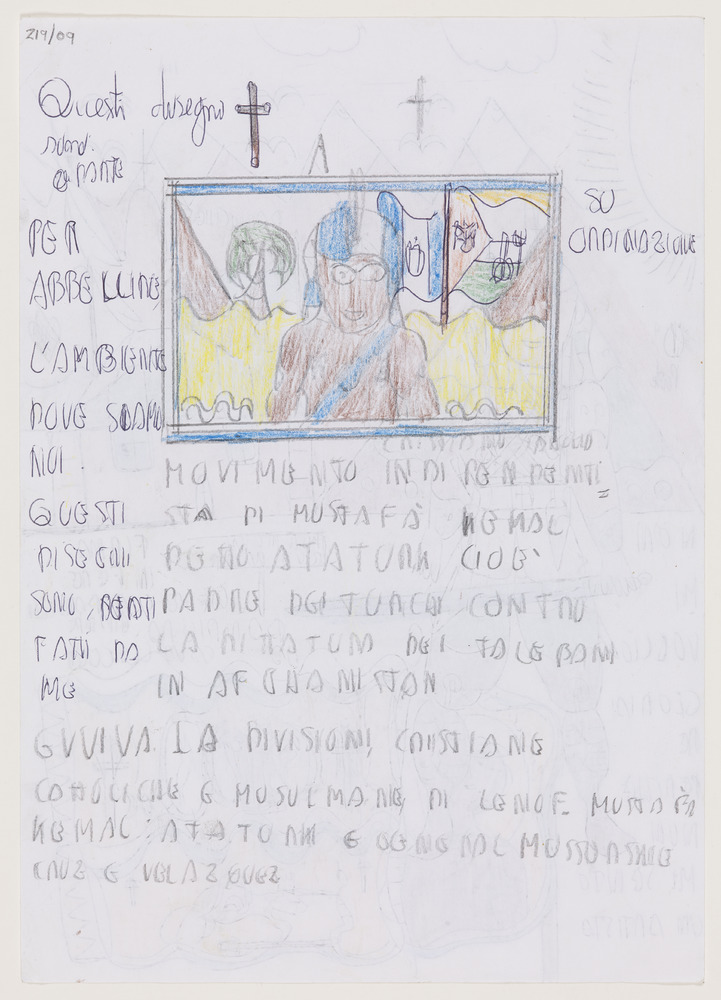 219/09
Questi disegni
sono
PER
ABBELLIRE
L'AMBIENTE
DOVE SIAMO
NOI.
QUESTI
DISEGNI
SONO,
FATTI DA
ME
SU
ORDINAZIONE
MOVIMENTO INDIPENDENTI=
STA DI MUSTAFÀ KEMAL
DEMO ATATURK CIOE'
PADRE DEI TURCHI CONTRO
LA DITTATURA DEI TALEBANI
IN AFGHANISTAN
EVVIVA LA DIVISIONI CRISTIANE
E MUSULMANE, DI MUSTAFÀ
KEMAL ATATURK E GENERAL
CRUZ E VELAZQUEZ